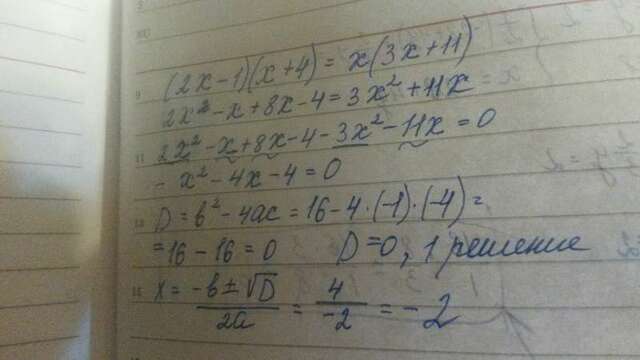 (2x-1)(x+4) = x(3x+11)
2x²-x+8x-4=3x²+11x
2x²-x+8x-4-3x²-11x=0
-x²-4x-4=0
D=b²-4ac=16-4·(-1)·(-4)=
=16-16=0 D=0, 1 решение
x = (-b±√D)/2a = 4/-2 = -2